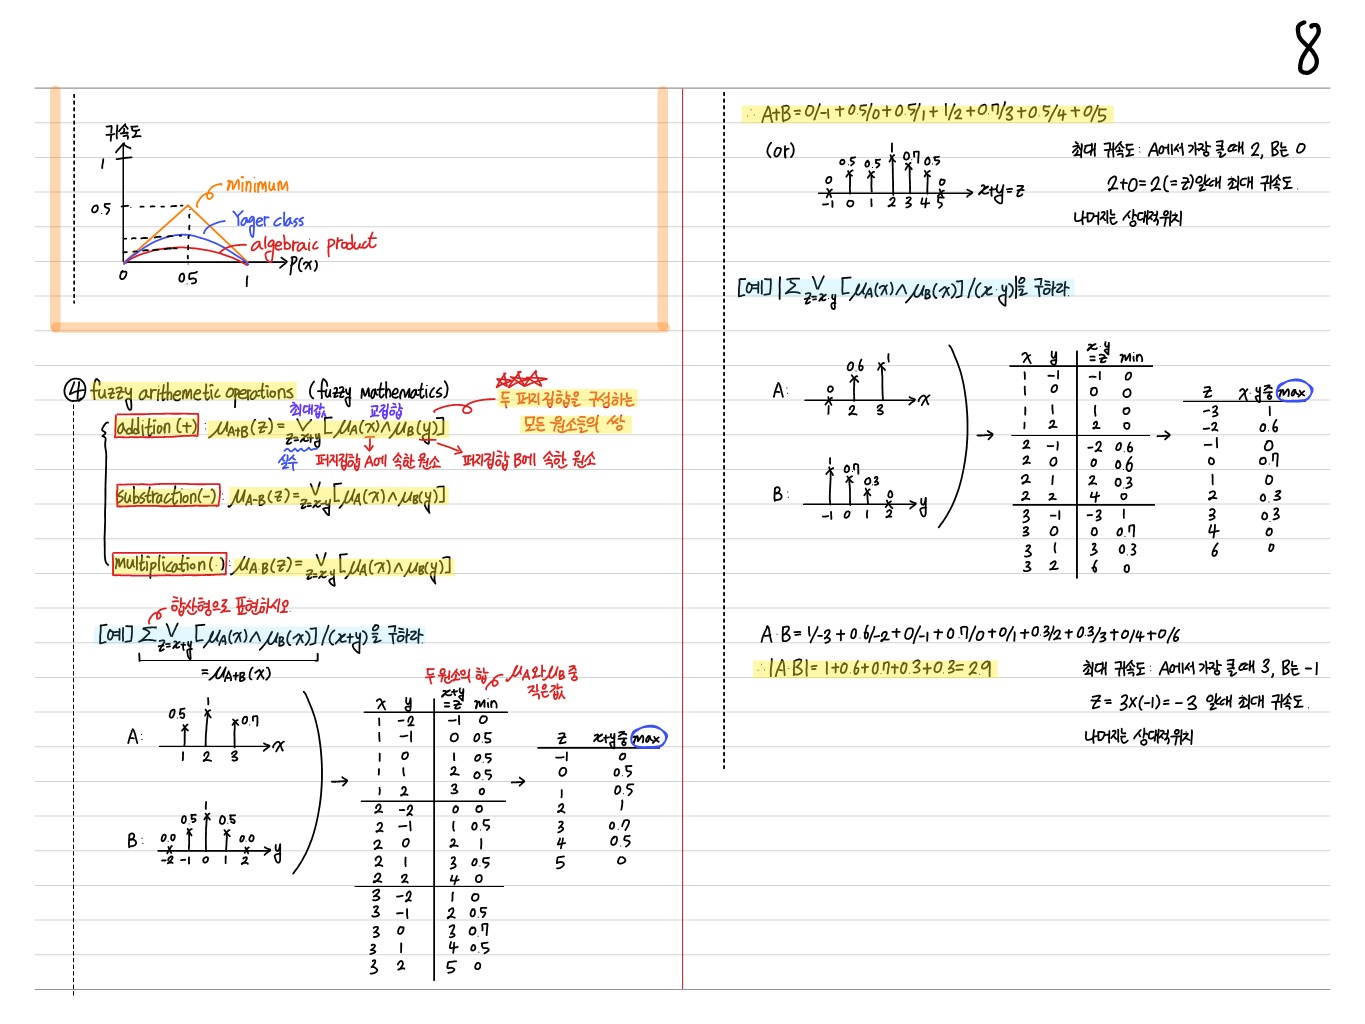 8
귀속도
1
minimum
0.5
Yager class
algebraic product
P(x)
0 0.5 1
④ fuzzy arithemetic operations (fuzzy mathematics)
두 퍼지집합을 구성하는
모든 원소들의 쌍
최대값 교집합
addition(+) : μA+B(z) = ∨z=x+y [μA(x)∧μB(y)]
실수 퍼지집합 A에 속한 원소 퍼지집합 B에 속한 원소
substraction(-) : μA-B(z) = ∨z=x-y [μA(x)∧μB(y)]
multiplication(·) : μA·B(z) = ∨z=x·y [μA(x)∧μB(y)]
합산형으로 표현하시오.
[예] Σ ∨z=x+y [μA(x)∧μB(x)]/(x+y)을 구하라.
= μA+B(x)
A:
0.5 1 0.7
1 2 3 x
B:
0.0 0.5 1 0.5 0.0
-2 -1 0 1 2 y
두 원소의 합 μA와 μB 중
작은값
x y x+y=z min
1 -2 -1 0
1 -1 0 0.5
1 0 1 0.5
1 1 2 0.5
1 2 3 0
2 -2 0 0
2 -1 1 0.5
2 0 2 1
2 1 3 0.5
2 2 4 0
3 -2 1 0
3 -1 2 0.5
3 0 3 0.7
3 1 4 0.5
3 2 5 0
z x+y중 max
-1 0
0 0.5
1 0.5
2 1
3 0.7
4 0.5
5 0
∴ A+B = 0/-1 + 0.5/0 + 0.5/1 + 1/2 + 0.7/3 + 0.5/4 + 0/5
(or)
0 0.5 0.5 1 0.7 0.5 0
-1 0 1 2 3 4 5 x+y=z
최대 귀속도: A에서 가장 클때 2, B는 0
2+0=2(=z)일때 최대 귀속도.
나머지는 상대적위치
[예] |Σ ∨z=x·y [μA(x)∧μB(x)]/(x·y)|을 구하라.
A:
0 0.6 1
1 2 3 x
B:
1 0.7 0.3 0
-1 0 1 2 y
x y x·y=z min
1 -1 -1 0
1 0 0 0
1 1 1 0
1 2 2 0
2 -1 -2 0.6
2 0 0 0.6
2 1 2 0.3
2 2 4 0
3 -1 -3 1
3 0 0 0.7
3 1 3 0.3
3 2 6 0
z x·y중 max
-3 1
-2 0.6
-1 0
0 0.7
1 0
2 0.3
3 0.3
4 0
6 0
A·B = 1/-3 + 0.6/-2 + 0/-1 + 0.7/0 + 0/1 + 0.3/2 + 0.3/3 + 0/4 + 0/6
∴ |A·B| = 1+0.6+0.7+0.3+0.3 = 2.9
최대 귀속도: A에서 가장 클때 3, B는 -1
z = 3x(-1) = -3 일때 최대 귀속도.
나머지는 상대적위치